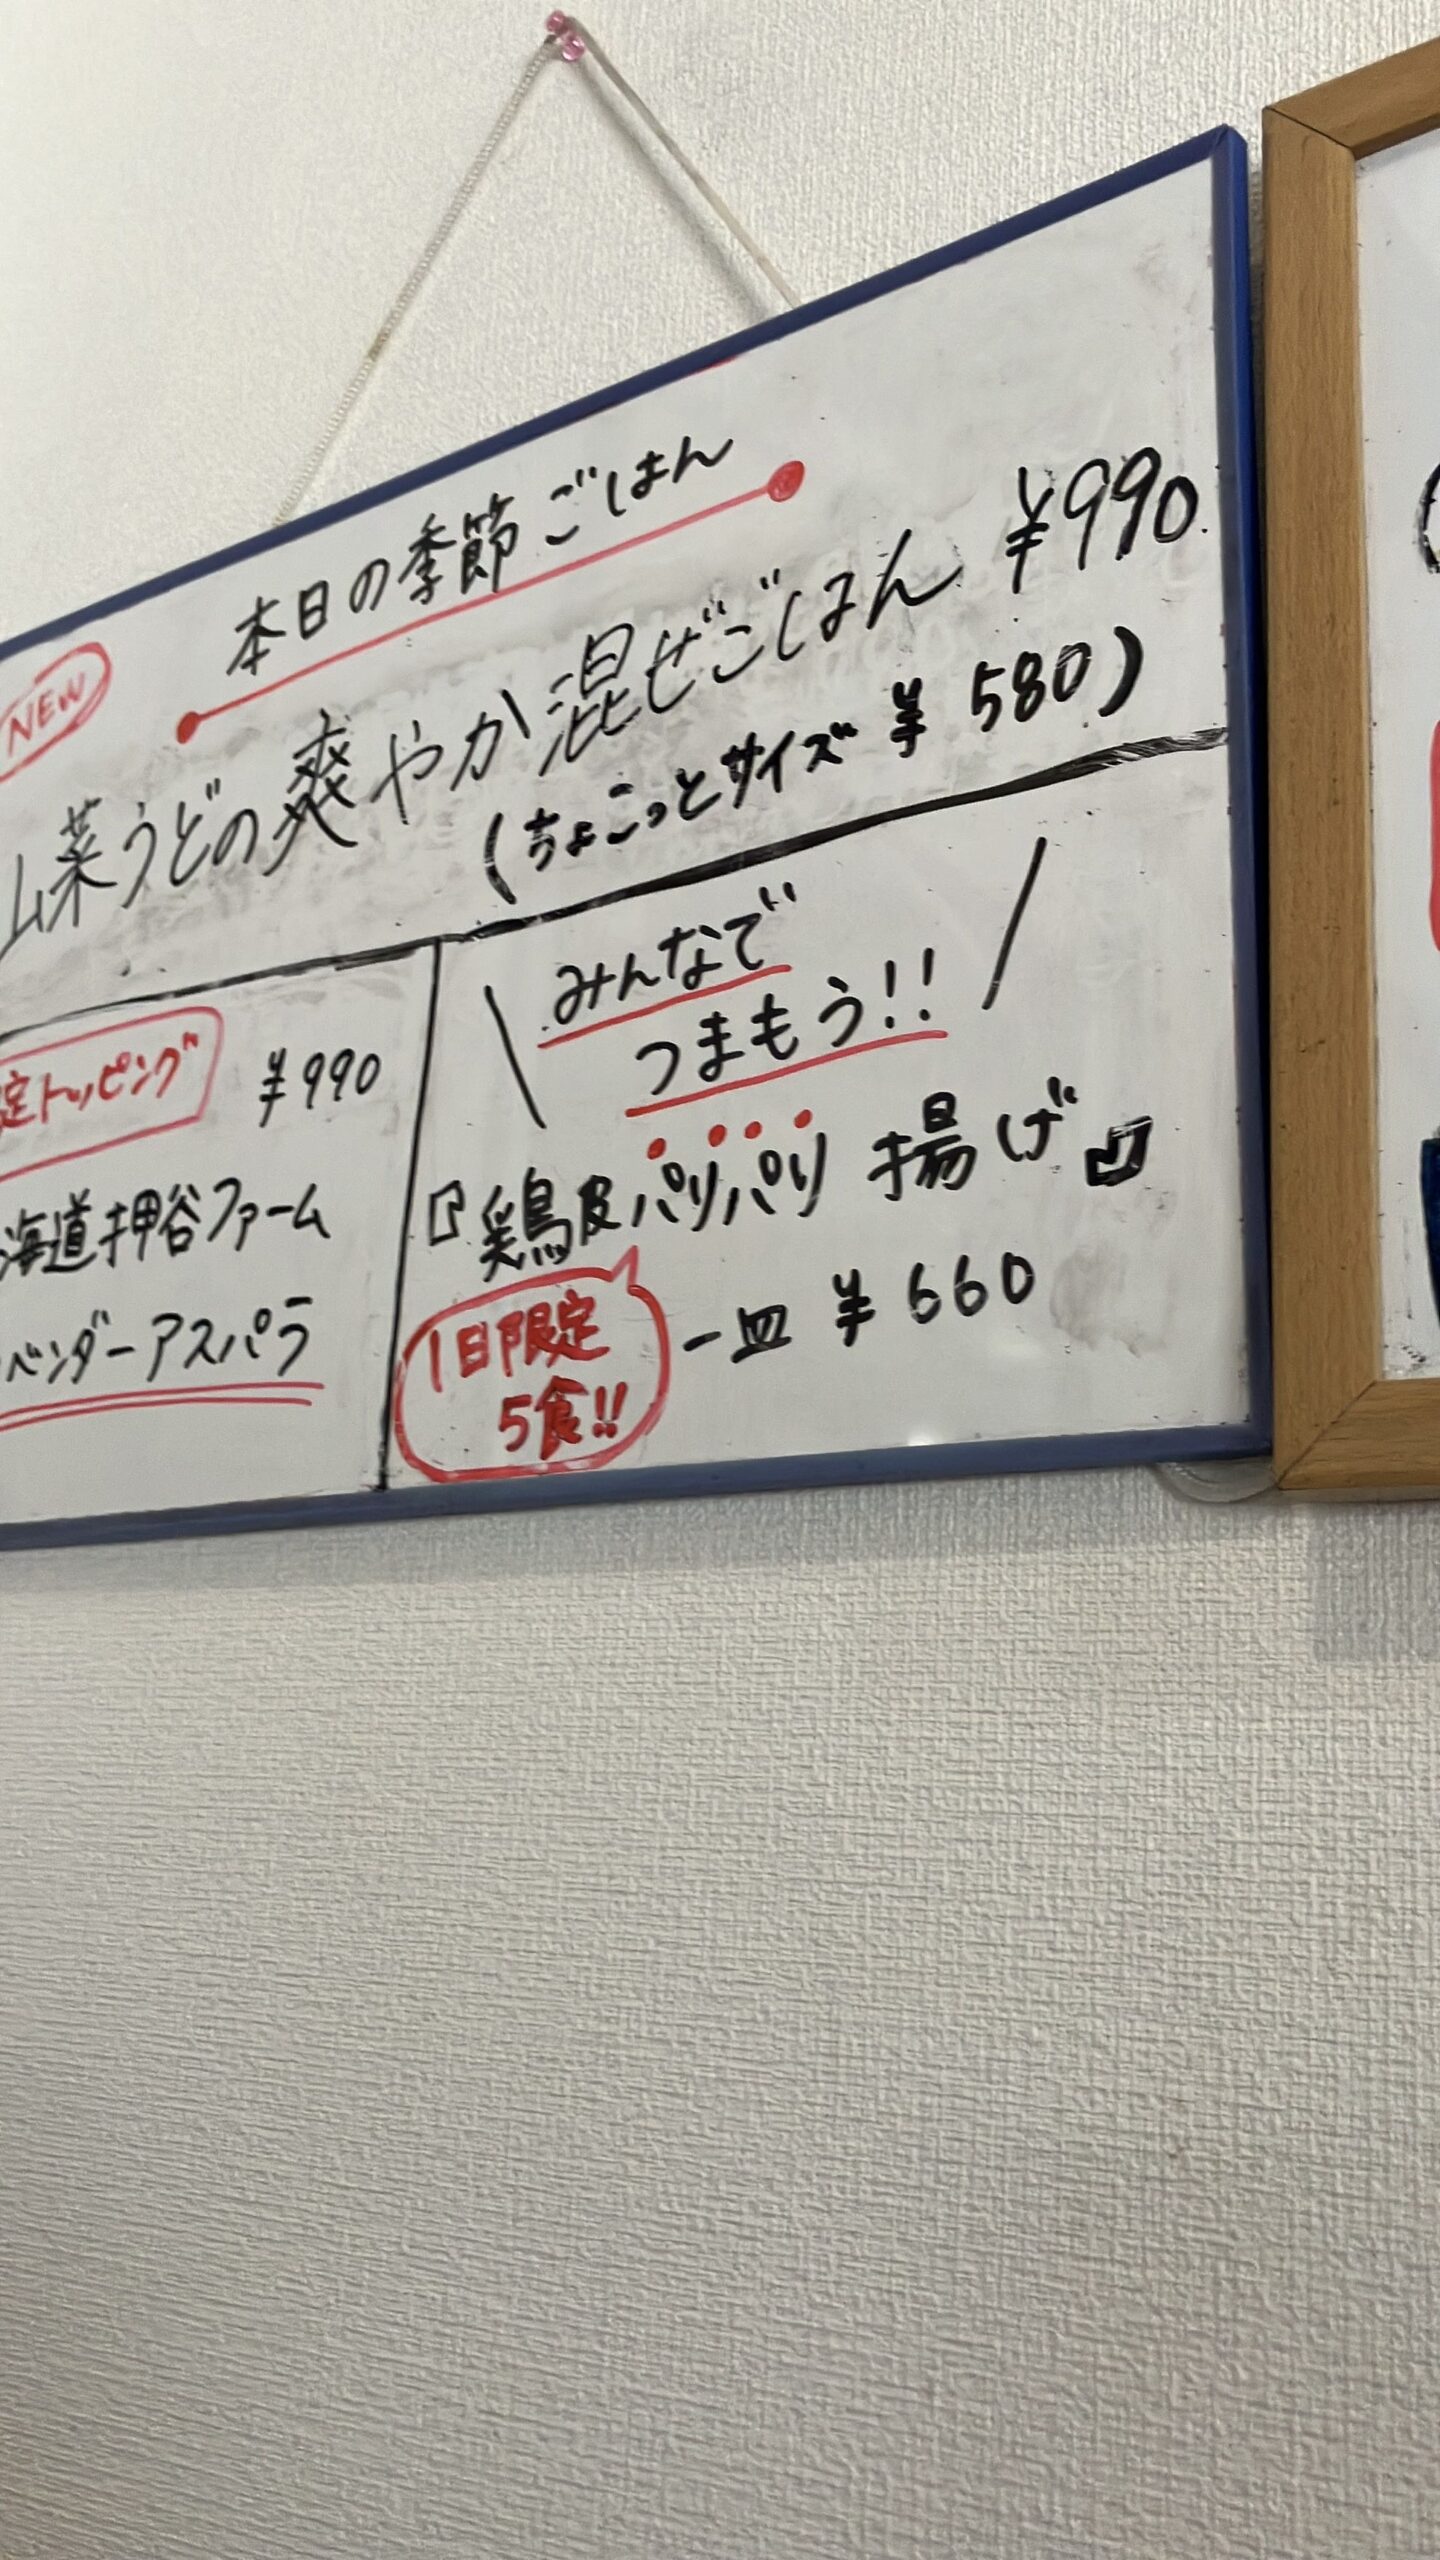 本日の季節ごはん
NEW
山菜うどの爽やか混ぜごはん ¥990
(ちょこっとサイズ ¥580)
定トッピング ¥990
海道押谷ファーム
ベンダーアスパラ
みんなで
つまもう!!
『鶏皮パリパリ揚げ』
1日限定
5食!!
一皿 ¥660